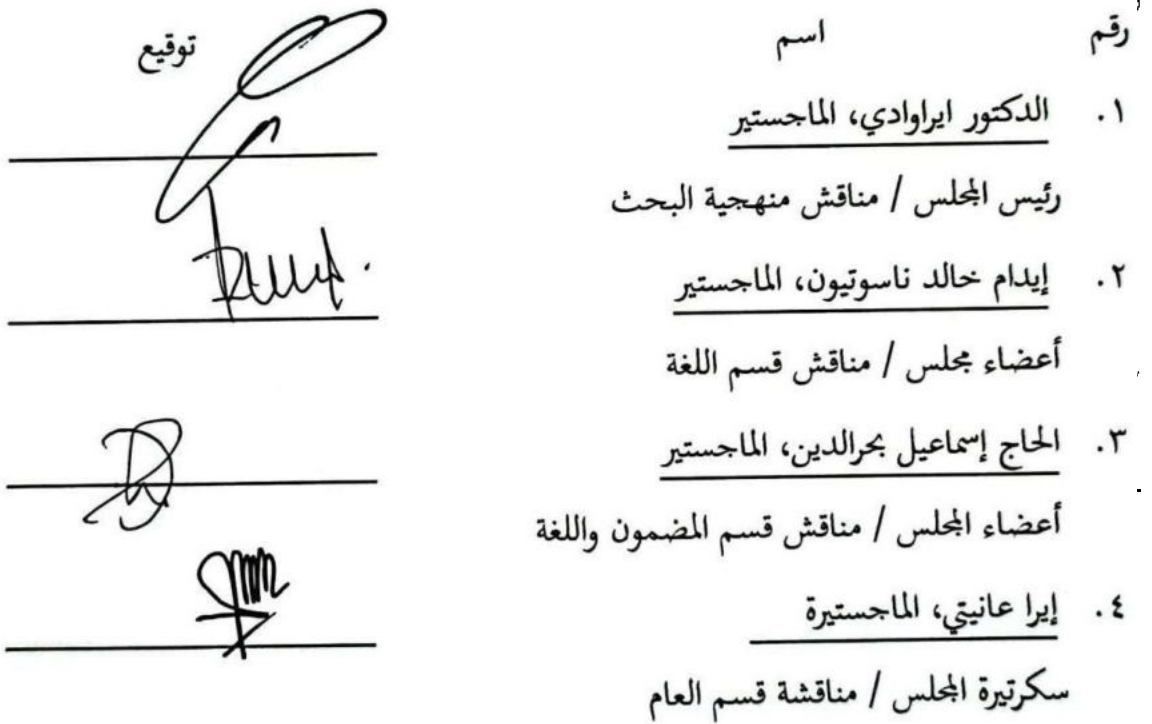 رقم اسم توقيع
١. الدكتور ايراوادي، الماجستير
رئيس المجلس / مناقش منهجية البحث
٢. إيدام خالد ناسوتيون، الماجستير
أعضاء مجلس / مناقش قسم اللغة
٣. الحاج إسماعيل بحرالدين، الماجستير
أعضاء المجلس / مناقش قسم المضمون واللغة
٤. إيرا عانيتي، الماجستيرة
سكرتيرة المجلس / مناقشة قسم العام